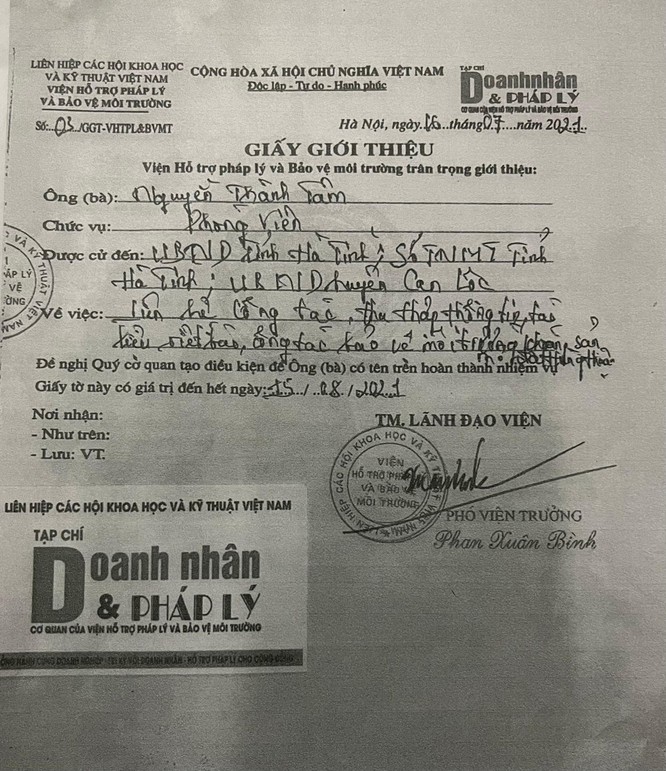 LIÊN HIỆP CÁC HỘI KHOA HỌC
VÀ KỸ THUẬT VIỆT NAM
VIỆN HỖ TRỢ PHÁP LÝ
VÀ BẢO VỆ MÔI TRƯỜNG
Số:..03../GGT-VHTPL&BVMT
CỘNG HÒA XÃ HỘI CHỦ NGHĨA VIỆT NAM
Độc lập - Tự do - Hạnh phúc
TẠP CHÍ
Doanh nhân
& PHÁP LÝ
CƠ QUAN CỦA VIỆN HỖ TRỢ PHÁP LÝ VÀ BẢO VỆ MÔI TRƯỜNG
Hà Nội, ngày.16...tháng.07....năm 2021..
GIẤY GIỚI THIỆU
Viện Hỗ trợ pháp lý và Bảo vệ môi trường trân trọng giới thiệu:
Ông (bà): Nguyễn Thành Tâm
Chức vụ: Phóng Viên
Được cử đến: UBND Tỉnh Hà Tĩnh; Sở TNMT Tỉnh
Hà Tĩnh; UBND huyện Can Lộc
Về việc: Liên hệ Công tác, thu thập thông tin, tài
liệu viết bài, công tác bảo vệ môi trường
Đề nghị Quý cơ quan tạo điều kiện để Ông (bà) có tên trên hoàn thành nhiệm vụ
Giấy tờ này có giá trị đến hết ngày: 15../..08../2021
Nơi nhận:
- Như trên:
- Lưu: VT.
TM. LÃNH ĐẠO VIỆN
LIÊN HIỆP CÁC HỘI KHOA HỌC VÀ KỸ THUẬT VIỆT NAM
VIỆN
HỖ TRỢ PHÁP LÝ
VÀ BẢO VỆ
MÔI TRƯỜNG
PHÓ VIỆN TRƯỞNG
Phan Xuân Bình
LIÊN HIỆP CÁC HỘI KHOA HỌC VÀ KỸ THUẬT VIỆT NAM
TẠP CHÍ
Doanh nhân
& PHÁP LÝ
CƠ QUAN CỦA VIỆN HỖ TRỢ PHÁP LÝ VÀ BẢO VỆ MÔI TRƯỜNG